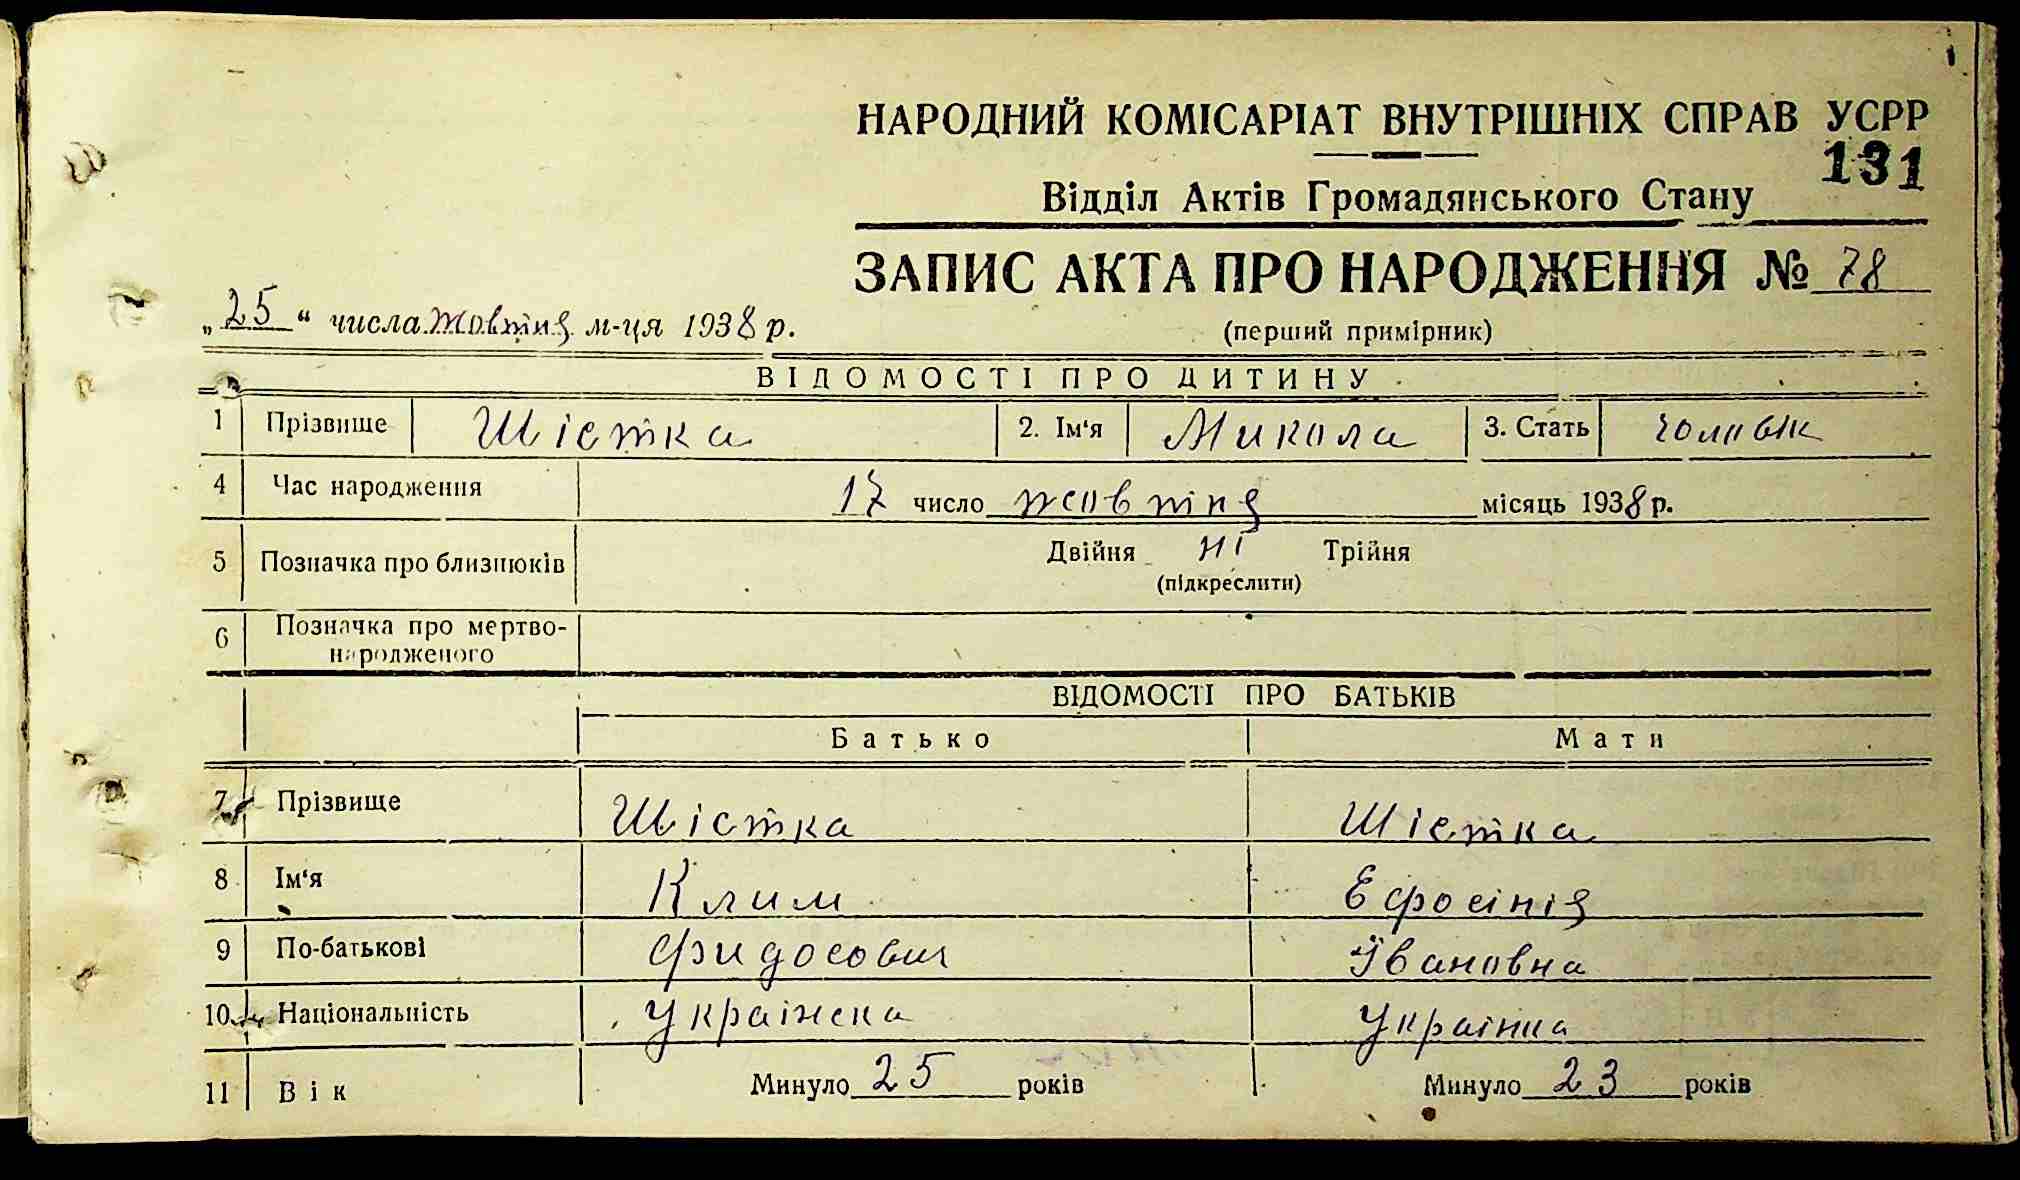 НАРОДНИЙ КОМІСАРІАТ ВНУТРІШНІХ СПРАВ УСРР
131
Відділ Актів Громадянського Стану
ЗАПИС АКТА ПРО НАРОДЖЕННЯ № 78
„25“ числа жовтня м-ця 1938 р.
(перший примірник)
ВІДОМОСТІ ПРО ДИТИНУ
1 Прізвище Шістка 2. Ім‘я Микола 3. Стать
4 Час народження 17 число жовтня місяць 1938 р.
5 Позначка про близнюків Двійня ні Трійня
(підкреслити)
6 Позначка про мертво-
народженого
ВІДОМОСТІ ПРО БАТЬКІВ
Батько Мати
7 Прізвище Шістка Шістка
8 Ім‘я Клим Ефосінія
9 По-батькові Фидосович Івановна
10 Національність Українска Українка
11 Вік Минуло 25 років Минуло 23 років